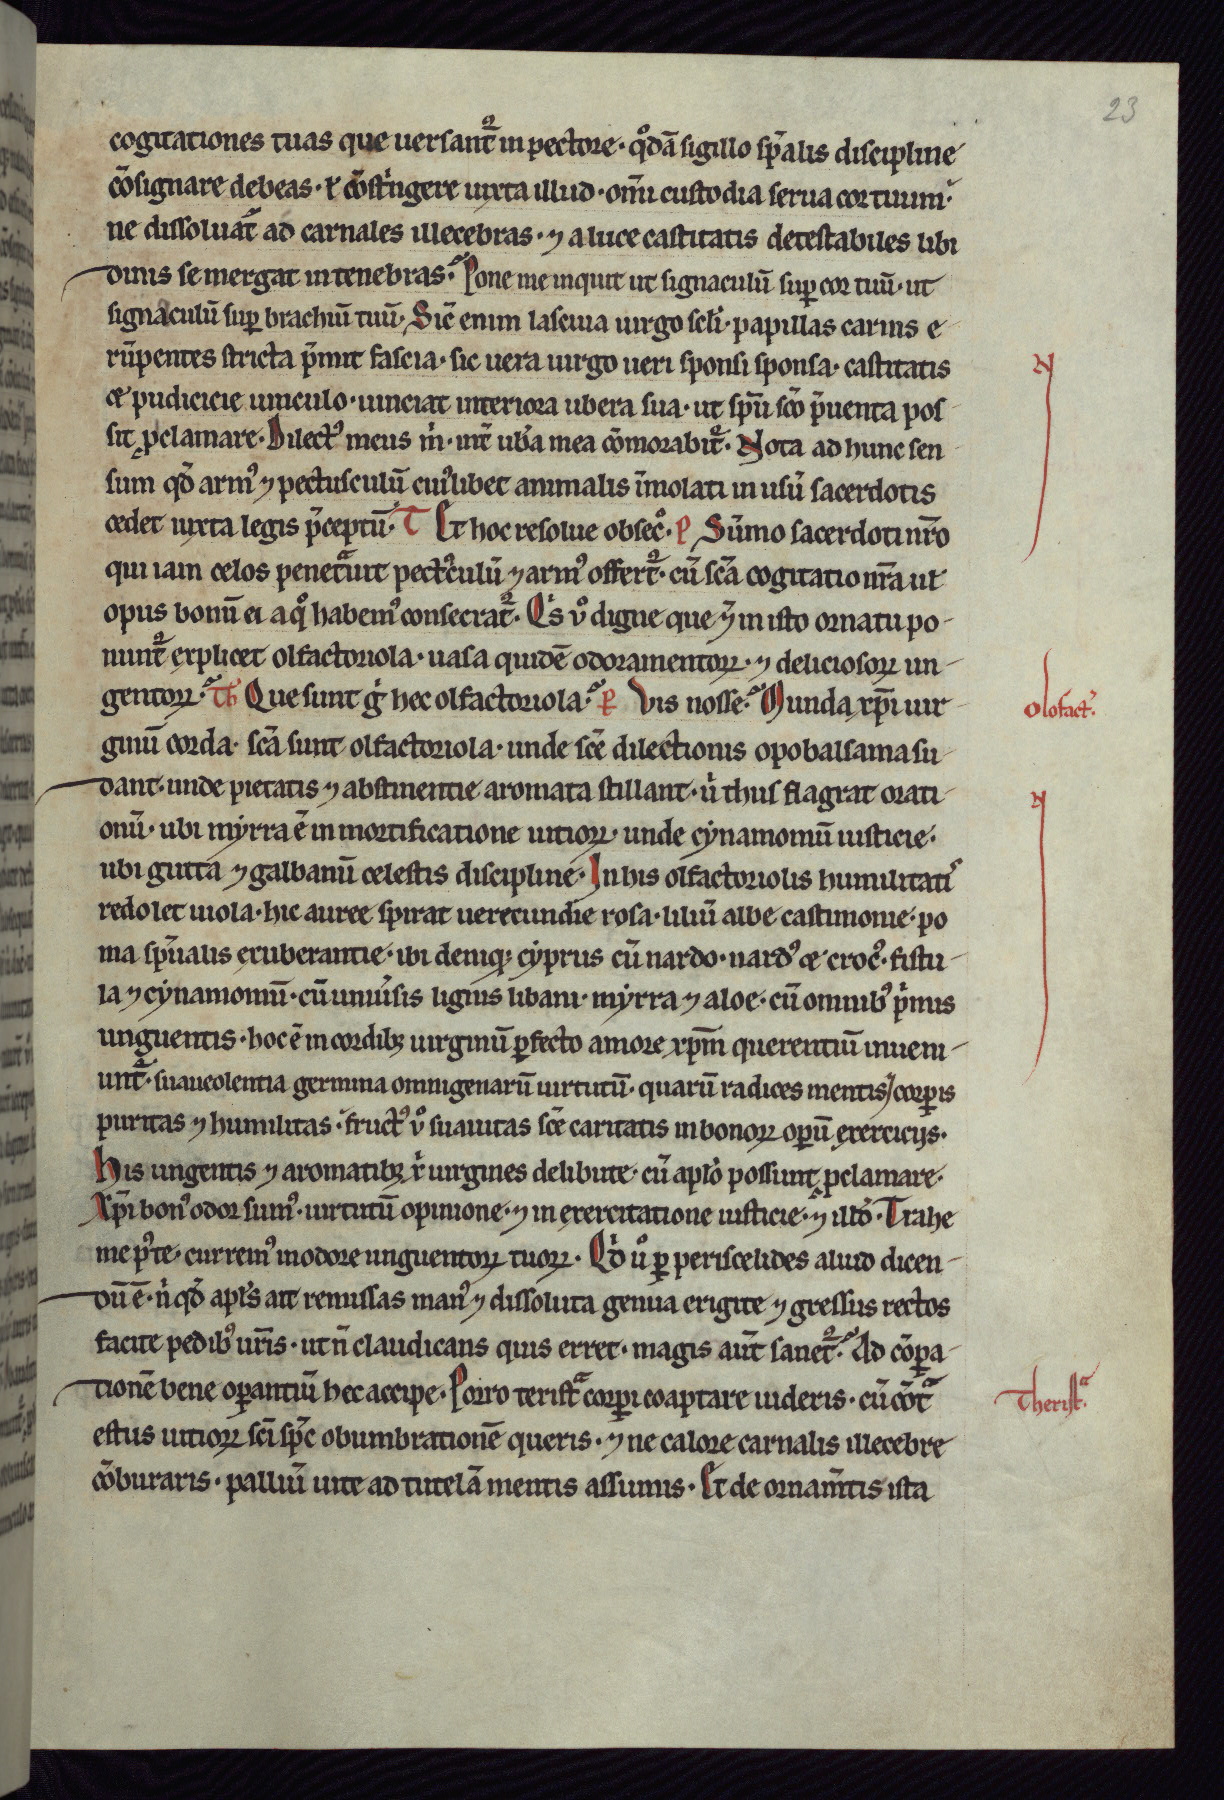 23
cogitationes tuas que uersant᷑ in pectore· qͦdā sigillo sp̄alis discipline
cōsignare debeas· ⁊ cōstͥngere iuxta illud· om̄i custodia serua cor tuum·
ne dissoluat᷑ ad carnales illecebras· ⁊ a luce castitatis detestabiles libi
dinis se mergat in tenebras· Pone me inquit ut signaculū suꝑ cor tuū· ut
signaculū suꝑ brachiū tuū· Sic̄ enim lasciua uirgo scl̄i· papillas carnis e
rūpentes stricta p̄mit fascia· sic uera uirgo ueri sponsi sponsa· castitatis
ac pudicicie uinculo· uinciat interiora ubera sua· ut sp̄u sc̄o p̄uenta pos
sit ꝓclamare· Dilectꝰ meus m̄· int̄ ub̄a mea cōmorabit᷑· Nota ad hunc sen
sum qd̄ armꝰ ⁊ pectusculū cuiꝰlibet animalis īmolati in usū sacerdotis
cedet iuxta legis p̄ceptū· T Et hoc resolue obsecͦ· P Sūmo sacerdoti nr̄o
qui iam celos penetͣuit pectꝰculū ⁊ armꝰ offert᷑· cū sc̄a cogitatio nr̄a ut
opus bonū ei a qͦ habemꝰ consecrat᷑· Qͥs ů digne que ⁊̄ in isto ornatu po
nunt᷑ explicet olfactoriola· uasa quidē odoramentoꝝ· ⁊ deliciosoꝝ un
gentoꝝ· Th Que sunt g̊ hec olfactoriola· P Vis nosse· Munda xp̄i uir
ginū corda· sc̄a sunt olfactoriola· unde sc̄e dilectionis opobalsama su
dant· unde pietatis ⁊ abstinentie aromata stillant· u̇ thus flagrat orati
onū· ubi myrra ē in mortificatione uitioꝝ· unde cynamomū iusticie·
ubi gutta ⁊ galbanū celestis discipline· In his olfactoriolis humilitatꝭ
redolet uiola· hic auree spirat uerecundie rosa· liliū albe castimonie· po
ma sp̄ualis exuberantie· ibi deniqꝫ cyprus cū nardo· nardꝰ ac crocꝰ· fistu
la ⁊ cynamomū· cū uniůsis lignis libani· myrra ⁊ aloe· cū omnibꝰ p̄mis
unguentis· hoc ē in cordibꝫ uirginū ꝑfecto amore xp̄m querentiū inueni
unt᷑· suaueolentia germina omnigenarū uirtutū· quarū radices mentis / corꝑis
puritas ⁊ humilitas· fructꝰ ů suauitas sc̄e caritatis in bonoꝝ oꝑū exerciciis·
His ungentis ⁊ aromatibꝫ xͥ uirgines delibute· cū apl̄o possunt ꝓclamare·
Xp̄i bonꝰ odor sumꝰ· uirtutū opinione· ⁊ in exercitatione iusticie· ⁊ illd̄· Trahe
me p̄ te· curremꝰ in odore unguentoꝝ tuoꝝ· Qd̄ ů ꝑ periscelides aliud dicen
dū ē· n̄ qd̄ apl̄s ait remissas manꝰ ⁊ dissoluta genua erigite ⁊ gressus rectos
facite pedibꝰ ur̄is· ut n̄ claudicans quis erret· magis aūt sanet᷑· Ad cōꝑa
tionē bene oꝑantiū hec accipe· Porro teristͣ corꝑi coaptare uideris· cū cōtͣ
estus uitioꝝ sc̄i sp̄c obumbrationē queris· ⁊ ne calore carnalis illecebre
cōburaris· palliū uite ad tutelā mentis assumis· Et de ornam̄tis ista
N
Olofactꝰ·
N
Theristͣ·